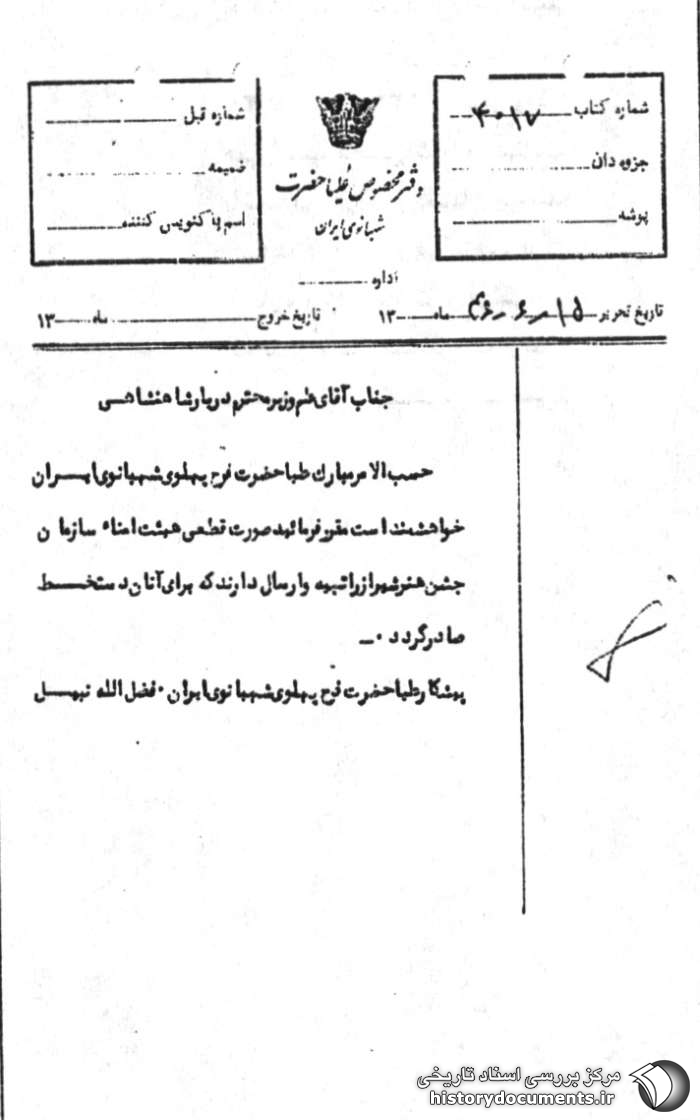 شماره کتاب ۴۰۱۷
جزوه دان
پوشه
دفتر مخصوص علیا حضرت
شهبانوی ایران
شماره قبل
ضمیمه
اسم پاکنویس کننده
اداره
تاریخ تحریر ۱۵ ر ۶ ر ۴۶ ماه ۱۳
تاریخ خروج ماه ۱۳
جناب آقای علم وزیر محترم دربار شاهنشاهی
حسب الامر مبارک علیا حضرت فرح پهلوی شهبانوی ایران
خواهشمند است مقرر فرمائید صورت قطعی هیئت امناء سازمان
جشن هنر شیراز را تهیه و ارسال دارند که برای آنان دستخط
صادر گردد ۰ــ
پیشکار علیا حضرت فرح پهلوی شهبانوی ایران ۰ فضل الله نبیل
مرکز بررسی اسناد تاریخی
historydocuments.ir